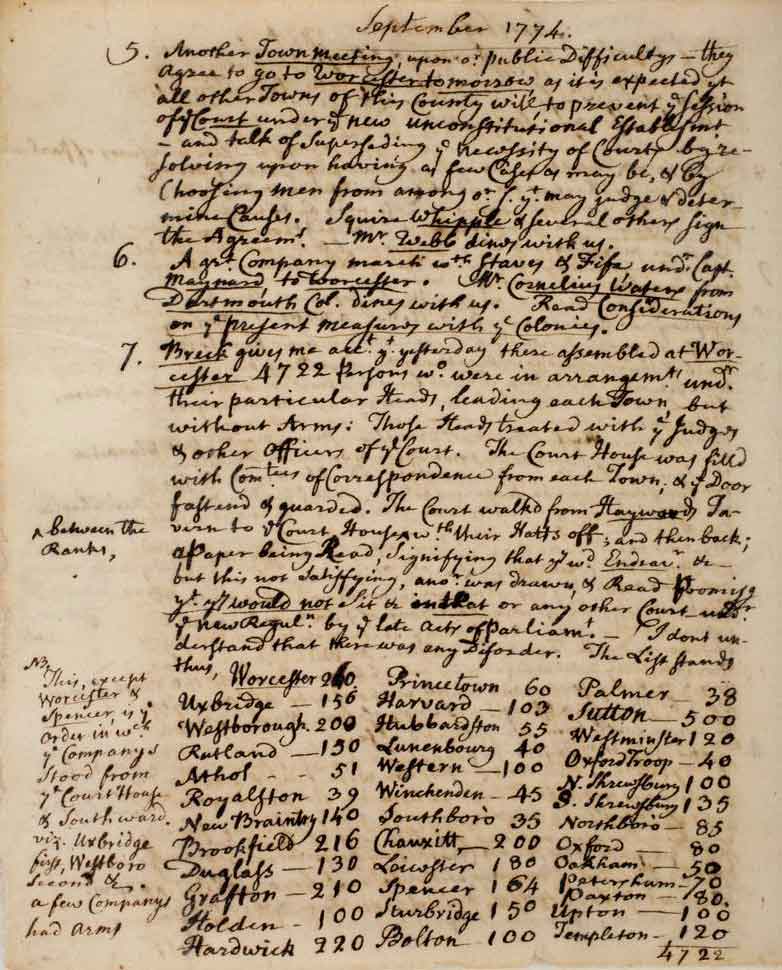 September 1774.
5. Another Town meeting, upon or public Difficultys — they
Agree to go to Worcester tomorrow as it is expected yt
all other Towns of this County will, to prevent ye Session
of ye Court under ye new unconstitutional Establismt
— and talk of Superseding ye necessity of Courts by re-
solving upon having as few Cases as may be, & by
Choosing men from among or s. yt may judge & deter-
mine Causes. Squire Whipple & several others sign
the Agreemt. — Mr. Webb dines with us.
6. A grt Company march wth Staves & Fife undr Capt.
Maynard, to Worcester. Mr. Cornelius Waters from
Dartmouth Col. dines with us. Read Considerations
on ye present measures with ye Colonies.
7. Breck gives me acct yt yesterday there assembled at Wor-
cester 4722 Persons wo were in arrangemts undr
their particular Heads, leading each Town, but
without Arms: Those Heads treated with ye Judges
& other Officers of ye Court. The Court House was filld
with Comtees of Correspondence from each Town; & ye Door
fastend & guarded. The Court walkd from Haywards Ta-
vern to ye Court House ^ wth their Hatts off; and then back;
^ between the
Ranks,
a Paper being Read, signifying that yy wd Endeavr. &c
but this not satisfying, anor was drawn, & Read promising
yt yy would not Sit &c in that or any other Court undr
ye new Reguln by ye late Acts of Parliamt. — I dont un-
derstand that there was any Disorder. The List stands
thus,
Worcester 260
Uxbridge — 156
Westborough 200
Rutland — 150
Athol — 51
Royalston 39
New Braintry 140
Brookfield 216
Duglass — 130
Grafton — 210
Holden — 100
Hardwick 220
Princetown 60
Harvard — 103
Hubbardston 55
Lunenbourg 40
Western — 100
Winchenden — 45
Southboro 35
Chauxitt, — 200
Leicester 180
Spencer 164
Sturbridge 150
Bolton 100
Palmer — 38
Sutton — 500
Westminster 120
Oxford Troop — 40
N. Shrewsbury 100
S. Shrewsbury 135
Northboro — 85
Oxford — 80
Oakham — 50
Petersham — 70
Paxton — 80.
Upton — 100
Templeton — 120
4722
NB
This, except
Worcester &
Spencer, is ye
Order in wch
ye Companys
Stood from
ye Court House
& Southward.
viz. Uxbridge
first, Westboro
Second &c.
a few Companys
had Arms